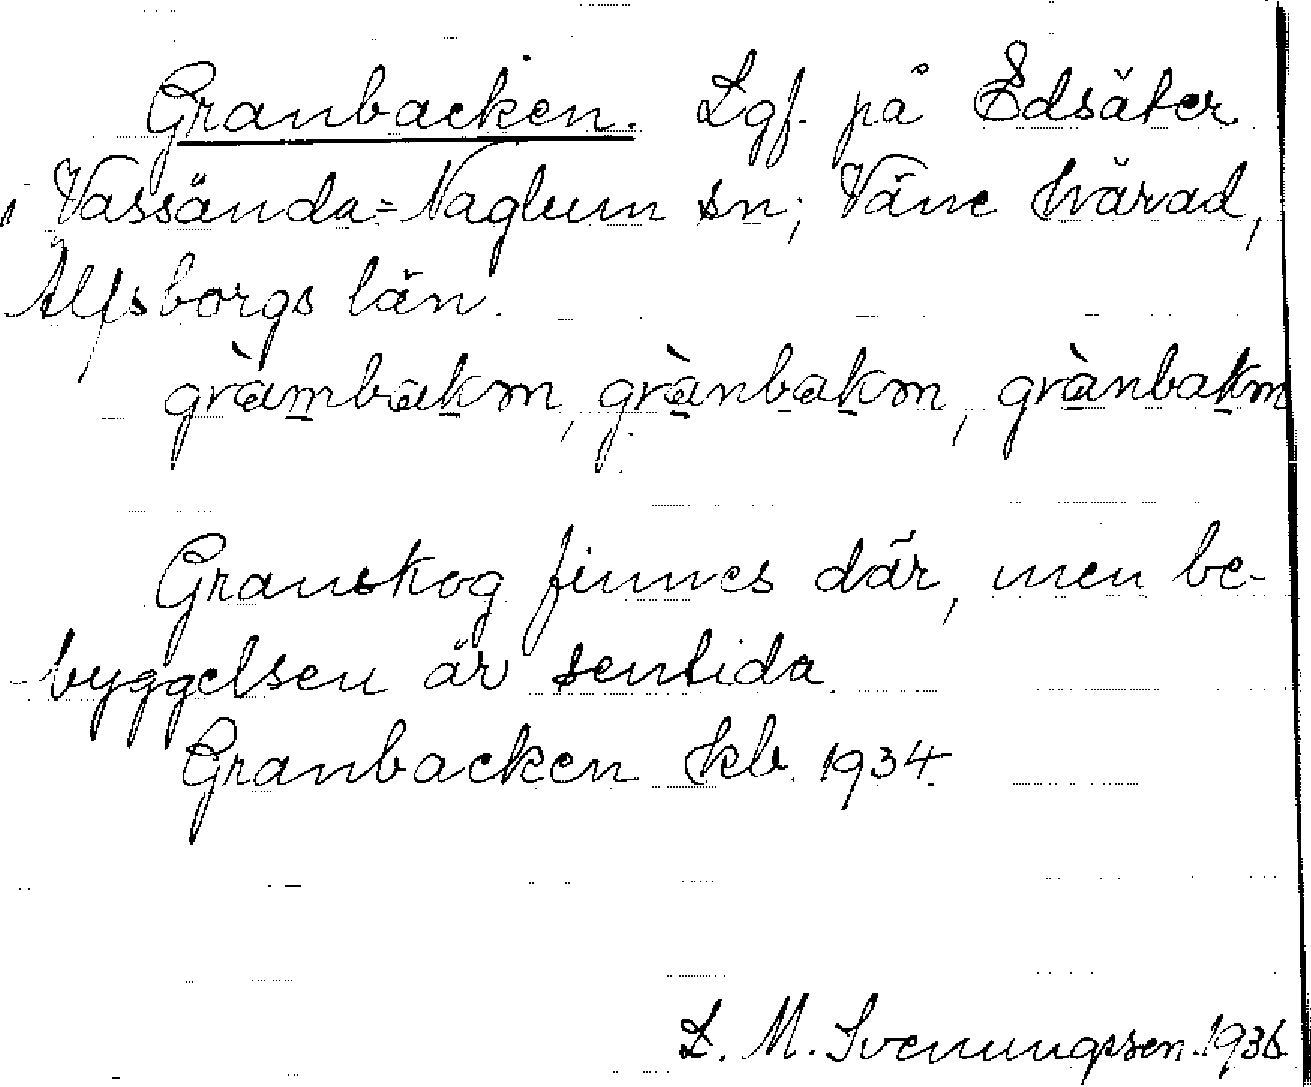 Granbacken. Lgf. på Edsäter
i Vassända=Naglum sn; Väne härad,
Älfsborgs län.
gràmbakm, grànbakm, grànbakm
Granskog finnes där, men be-
byggelsen är sentida.
Granbacken kb. 1934.
L. M. Svenungsson. 1936